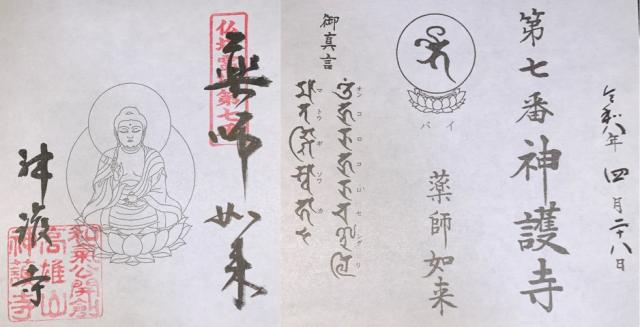 令和八年 四月二十八日
第七番 神護寺
バイ
薬師如来
御真言
オンコロコロセンダリ
マトウギソワカ
第七
薬師如来
神護寺
和気公開創
高雄山
神護寺